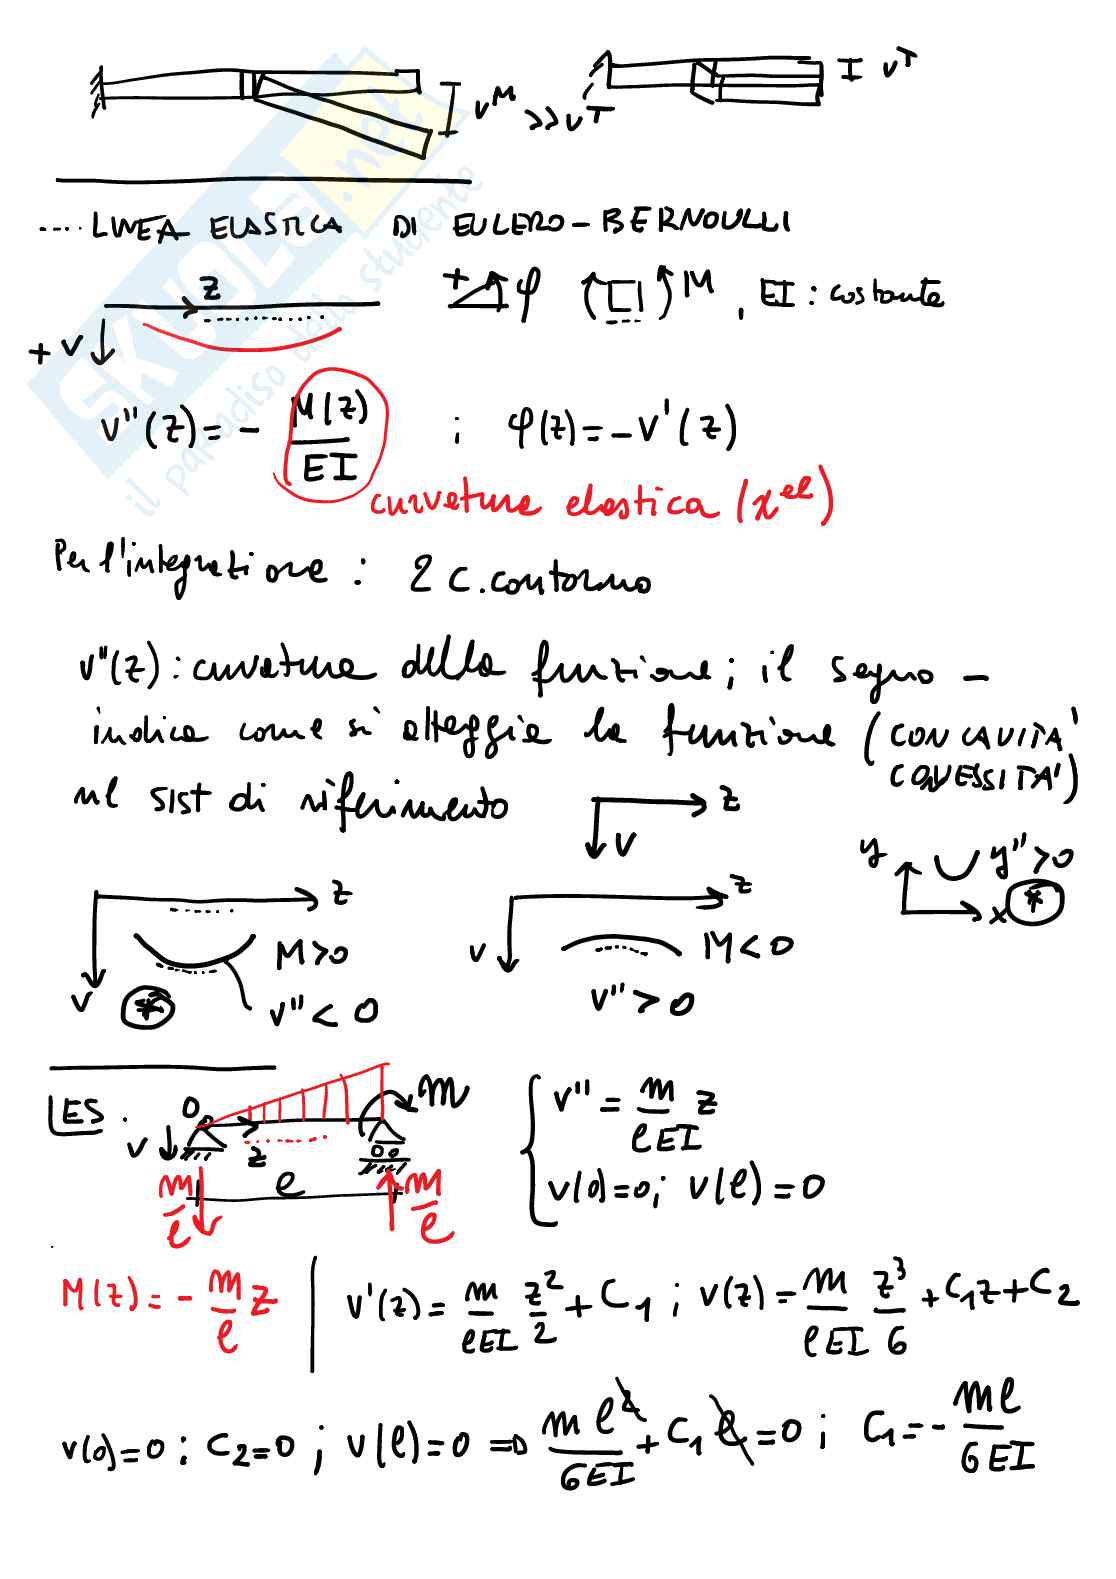 v^M >> v^T
I v^T
.... LINEA ELASTICA DI EULERO-BERNOULLI
z
+ φ M , EI : costante
+ v
v''(z) = - M(z)/EI ; φ(z) = -v'(z)
curvatura elastica (χ^el)
Per l'integrazione : 2 c. contorno
v''(z) : curvatura della funzione ; il segno -
indica come si atteggia la funzione ( CONCAVITA'
CONVESSITA')
nel SIST di riferimento
z
v
y y''>0
x *
z
v
M>0
* v'' < 0
z
v
M<0
v'' > 0
ES.
0 m
v z
l
m/l m/l
v'' = m/(lEI) z
v(0)=0; v(l)=0
M(z) = - m/l z
v'(z) = m/(lEI) z²/2 + C₁ ; v(z) = m/(lEI) z³/6 + C₁z + C₂
v(0)=0 : C₂=0 ; v(l)=0 ⇒ ml²/(6EI) + C₁ l = 0 ; C₁ = - ml/(6EI)
SKUOLA.net
il paradiso dello studente